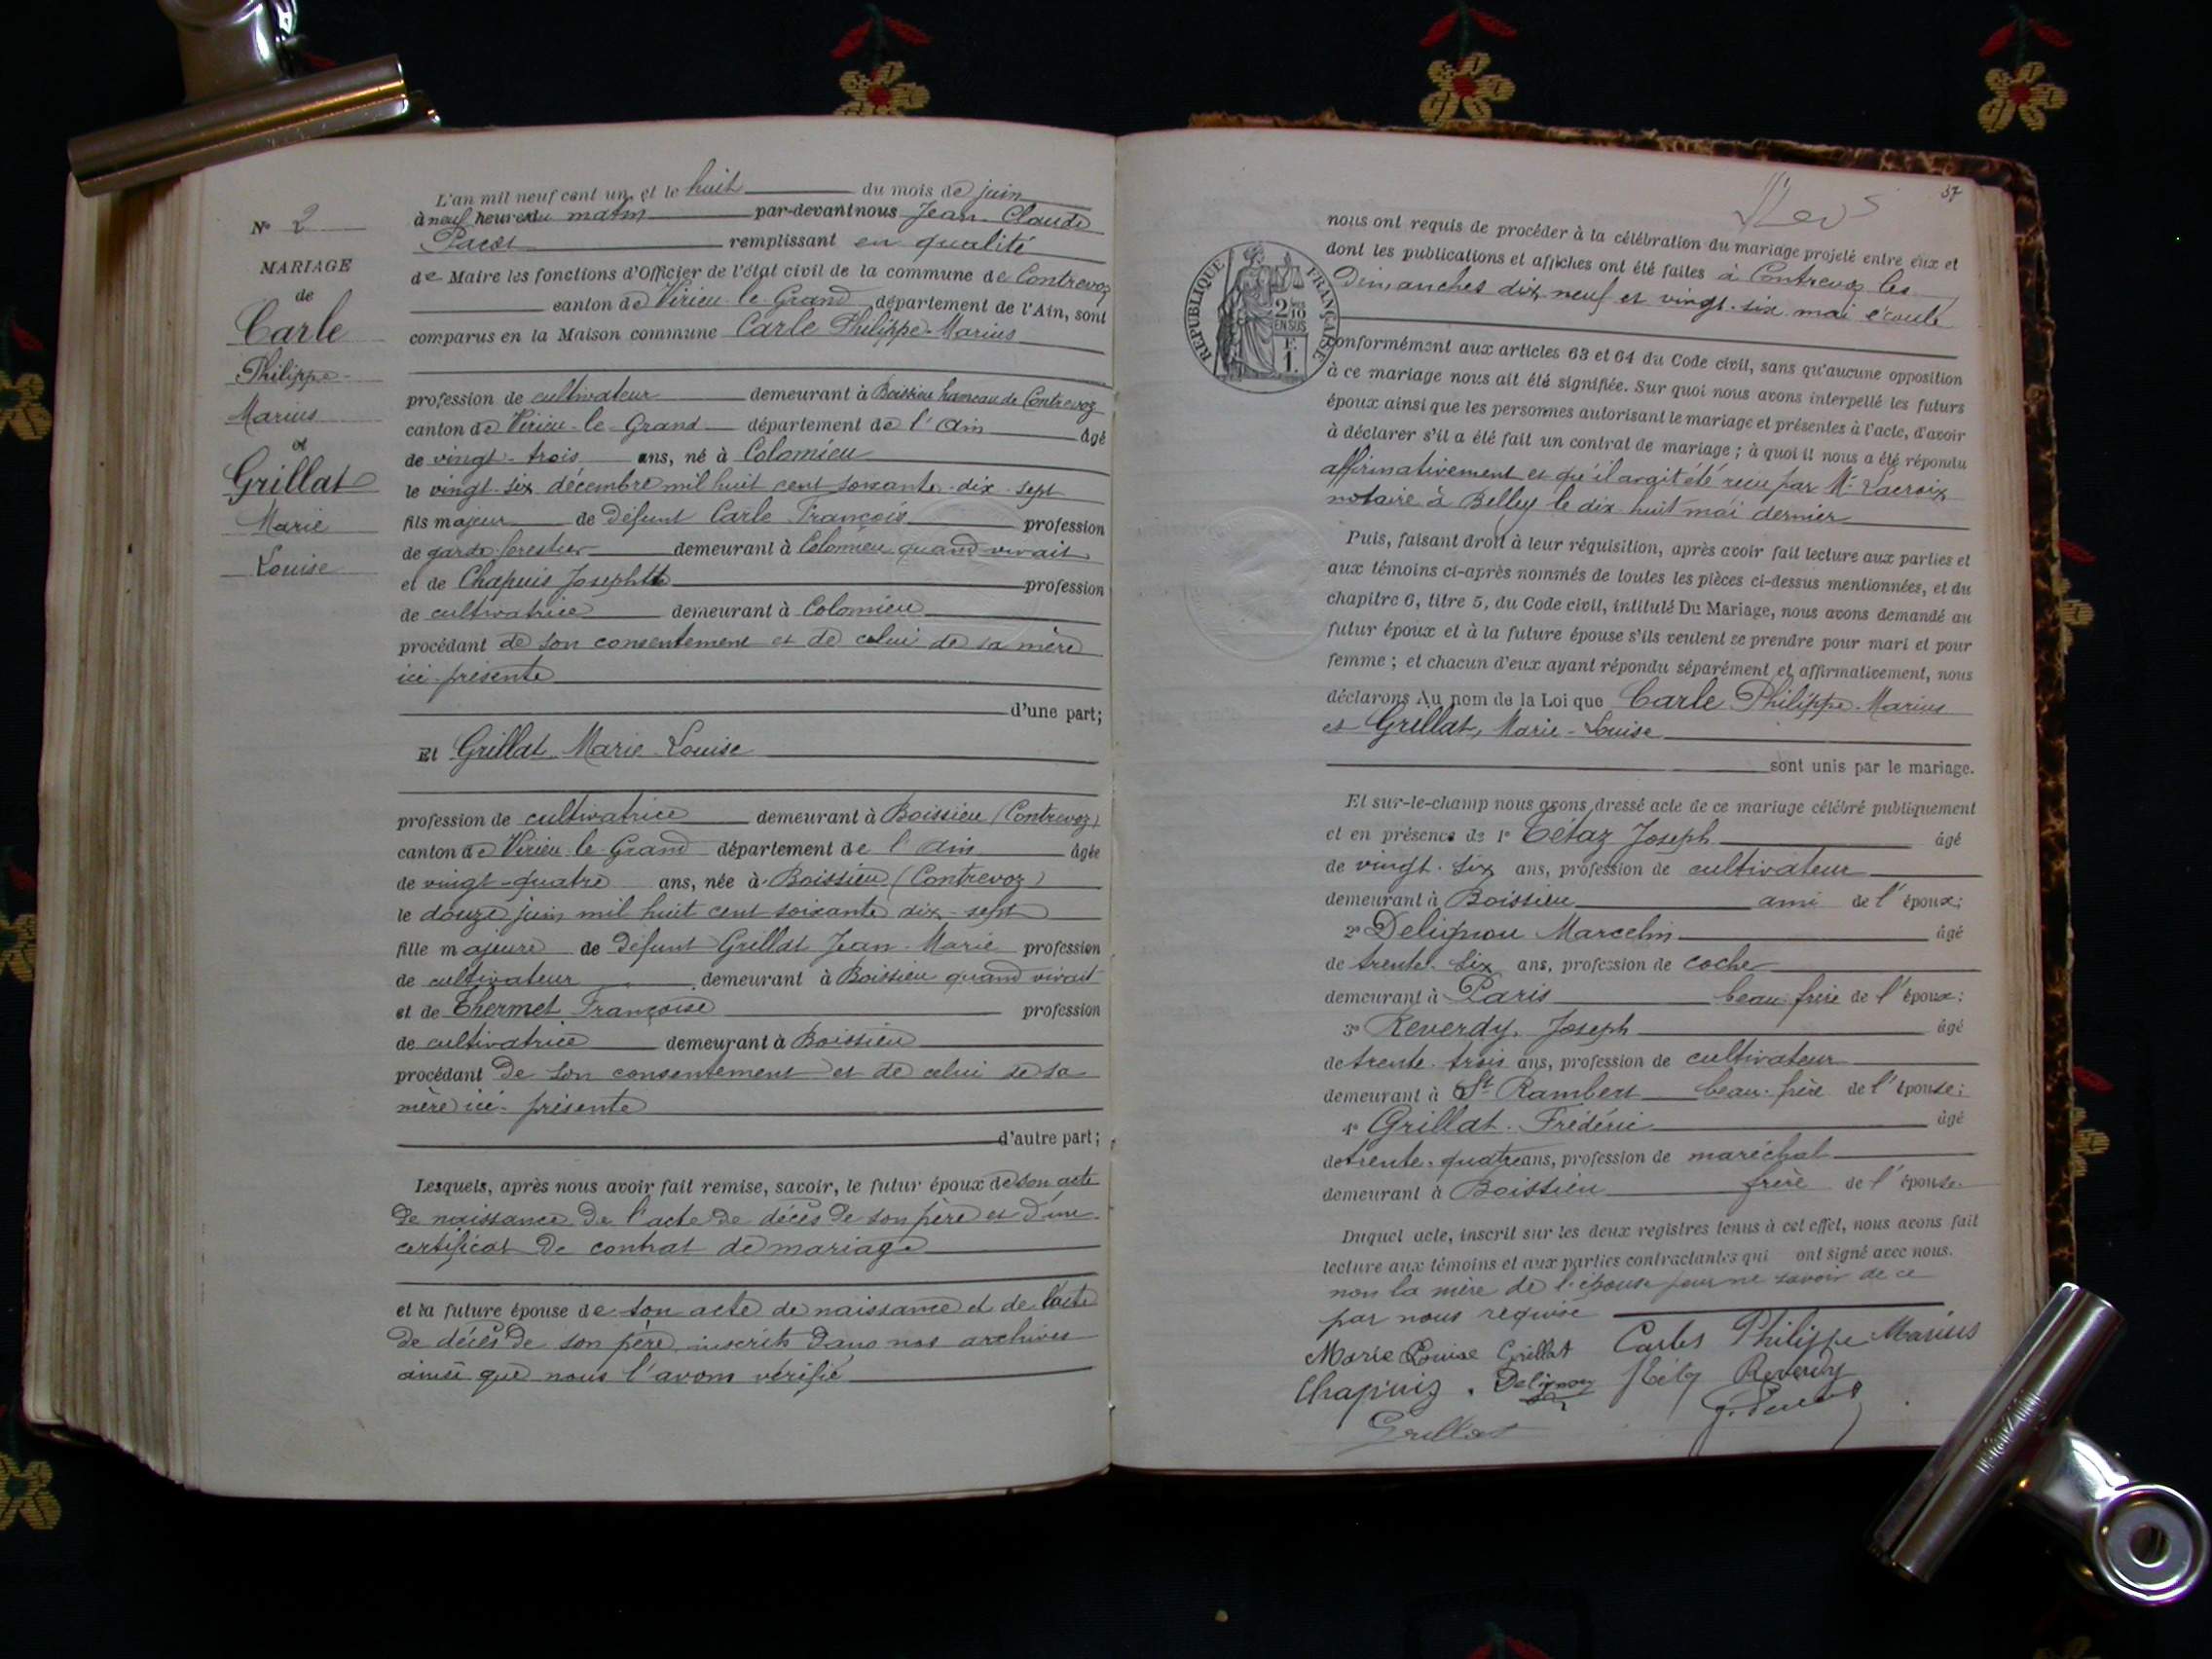 N° 2
MARIAGE
de
Carle
Philippe
Marius
et
Grillat
Marie
Louise
L'an mil neuf cent un, et le huit du mois de juin
à neuf heures du matin par-devant nous Jean-Claude
remplissant en qualité
de Maire les fonctions d'Officier de l'état civil de la commune de Contrevoz
canton de Virieu-le-Grand, département de l'Ain, sont
comparus en la Maison commune Carle Philippe-Marius
profession de cultivateur demeurant à Boissieu hameau de Contrevoz
canton de Virieu-le-Grand département de l'Ain âgé
de vingt-trois ans, né à Colomieu
le vingt-six décembre mil huit cent soixante-dix-sept
fils majeur de défunt Carle François profession
de garde forestier demeurant à Colomieu quand vivait
et de Chapuis Josephte profession
de cultivatrice demeurant à Colomieu
procédant de son consentement et de celui de sa mère
ici présente
d'une part;
Et Grillat Marie-Louise
profession de cultivatrice demeurant à Boissieu (Contrevoz)
canton de Virieu-le-Grand département de l'Ain âgée
de vingt-quatre ans, née à Boissieu (Contrevoz)
le douze juin mil huit cent soixante dix-sept
fille majeure de défunt Grillat Jean-Marie profession
de cultivateur demeurant à Boissieu quand vivait
et de Thermet Françoise profession
de cultivatrice demeurant à Boissieu
procédant de son consentement et de celui de sa
mère ici présente
d'autre part;
Lesquels, après nous avoir fait remise, savoir, le futur époux de son acte
de naissance de l'acte de décès de son père et d'un
certificat de contrat de mariage
et la future épouse de son acte de naissance et de l'acte
de décès de son père inscrits dans nos archives
ainsi que nous l'avons vérifié
37
nous ont requis de procéder à la célébration du mariage projeté entre eux et
dont les publications et affiches ont été faites à Contrevoz les
Dimanches dix neuf et vingt-six mai écoulé
RÉPUBLIQUE FRANÇAISE
2/10
EN SUS
F.
1.
conformément aux articles 63 et 64 du Code civil, sans qu'aucune opposition
à ce mariage nous ait été signifiée. Sur quoi nous avons interpellé les futurs
époux ainsi que les personnes autorisant le mariage et présentes à l'acte, d'avoir
à déclarer s'il a été fait un contrat de mariage; à quoi il nous a été répondu
affirmativement et qu'il avait été reçu par Me Lacroix
notaire à Belley le dix huit mai dernier
Puis, faisant droit à leur réquisition, après avoir fait lecture aux parties et
aux témoins ci-après nommés de toutes les pièces ci-dessus mentionnées, et du
chapitre 6, titre 5, du Code civil, intitulé Du Mariage, nous avons demandé au
futur époux et à la future épouse s'ils veulent se prendre pour mari et pour
femme; et chacun d'eux ayant répondu séparément et affirmativement, nous
déclarons Au nom de la Loi que Carle Philippe-Marius
et Grillat, Marie-Louise
sont unis par le mariage.
Et sur-le-champ nous avons dressé acte de ce mariage célébré publiquement
et en présence de 1° Tétaz Joseph âgé
de vingt-six ans, profession de cultivateur
demeurant à Boissieu ami de l'époux;
2° Delignou Marcelin âgé
de trente-six ans, profession de cocher
demeurant à Paris beau-frère de l'époux;
3° Reverdy, Joseph âgé
de trente-trois ans, profession de cultivateur
demeurant à St Rambert beau-frère de l'épouse;
4° Grillat Frédéric âgé
de trente-quatre ans, profession de maréchal
demeurant à Boissieu frère de l'épouse.
Duquel acte, inscrit sur les deux registres tenus à cet effet, nous avons fait
lecture aux témoins et aux parties contractantes qui ont signé avec nous.
non la mère de l'épouse pour ne savoir de ce
par nous requise
Marie Louise Grillat Carle Philippe Marius
Chapuis. Delignou Reverdy
Grillat